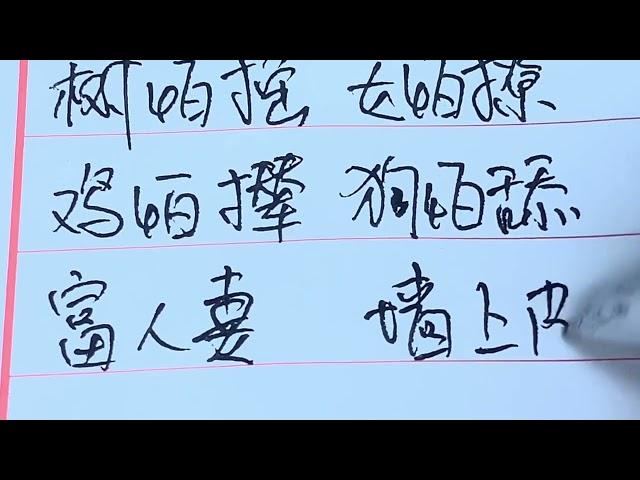 树怕摇 女怕撩
鸡怕撵 狗怕舔
富人妻 墙上皮